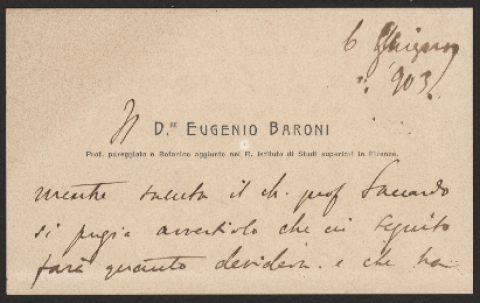 6 Giugno
903.
Il D.RE EUGENIO BARONI
Prof. pareggiato e Botanico aggiunto nel R. Istituto di Studi superiori in Firenze.
mentre saluta il ch. prof Saccardo
si pregia avvertirlo che in seguito
farà quanto desidera e che ha